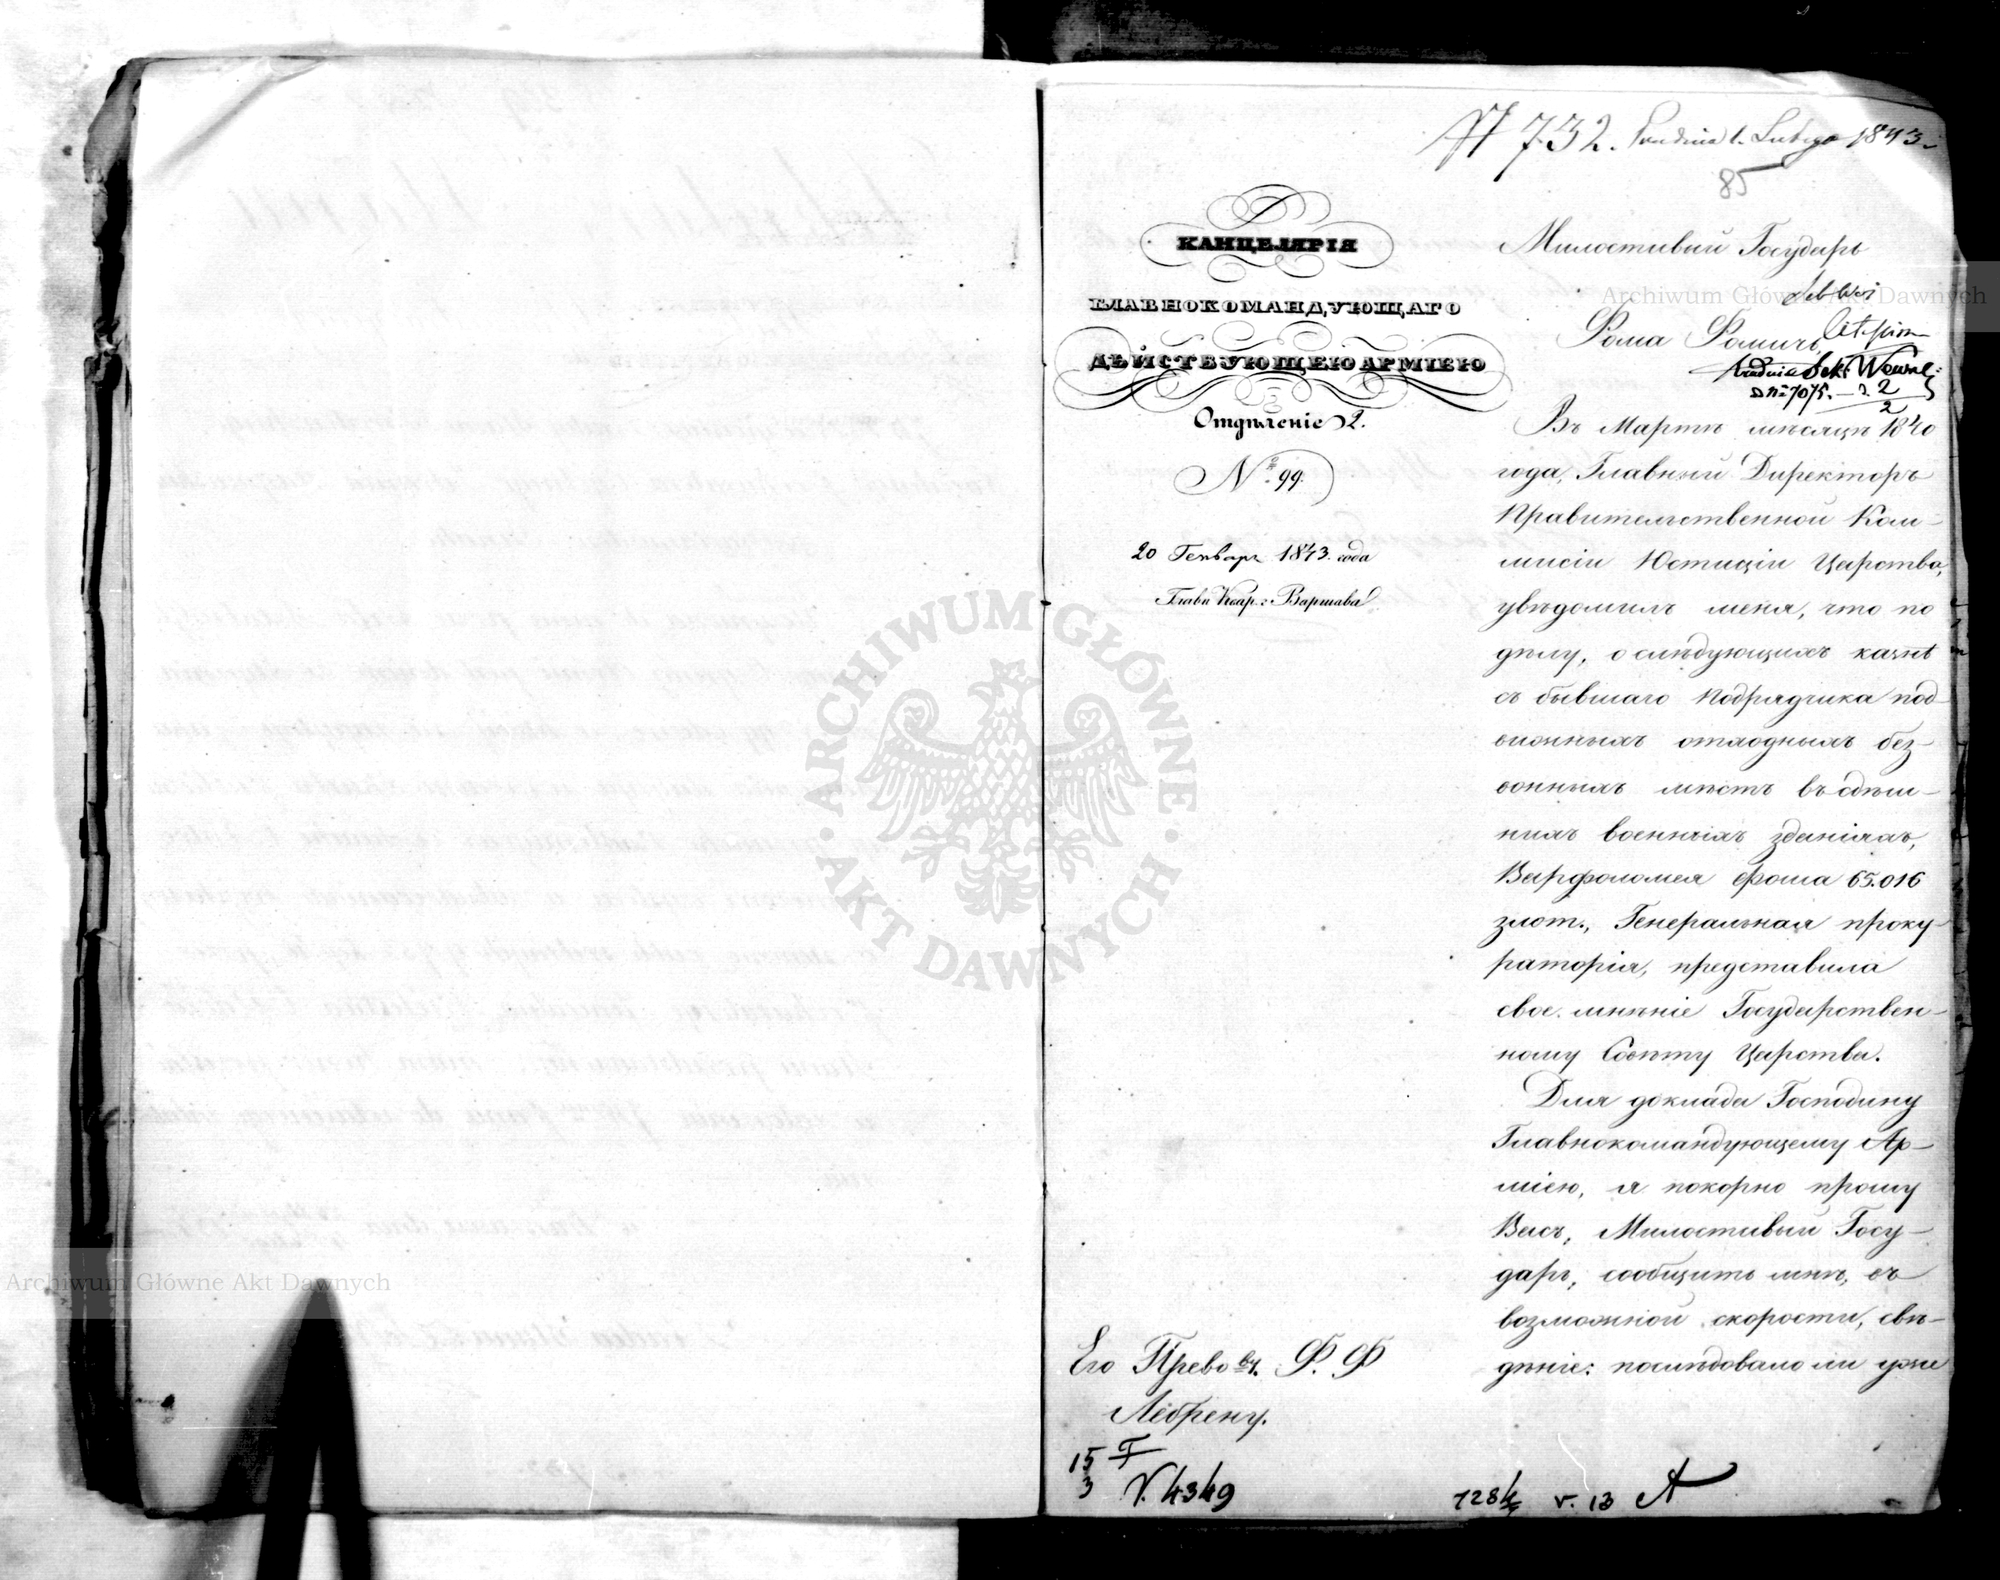 № 732. Prod. dnia 1. Lutego 1843.
85
КАНЦЕЛЯРІЯ
ГЛАВНОКОМАНДУЮЩАГО
ДѢЙСТВУЮЩЕЮ АРМІЕЮ
Отдѣленіе 2.
№ 99.
20 Генваря 1843. года
Главн. Квар.: Варшава
Милостивый Государь
Фома Фомичъ,
Въ Мартѣ мѣсяцѣ 1840
года, Главный Директоръ
Правительственной Ком-
мисіи Юстиціи Царства,
увѣдомилъ меня, что по
дѣлу, о слѣдующихъ казнѣ
съ бывшаго подрядчика под-
вижныхъ отходныхъ без-
вонныхъ мѣстъ въ здѣш-
нихъ военныхъ зданіяхъ,
Варфоломея 65.016
злот., Генеральная проку-
раторія, представила
свое мнѣніе Государствен-
ному Совѣту Царства.
Для доклада Господину
Главнокомандующему Ар-
міею, я покорно прошу
Васъ, Милостивый Госу-
дарь, сообщить мнѣ, въ
возможной скорости, свѣ-
дѣніе: послѣдовало ли уже
Его Прево въ. Ф. Ф
Лебрену.
15
3
V. 4349
v. 13
Archiwum Główne Akt Dawnych
Archiwum Główne Akt Dawnych
ARCHIWUM GŁÓWNE AKT DAWNYCH